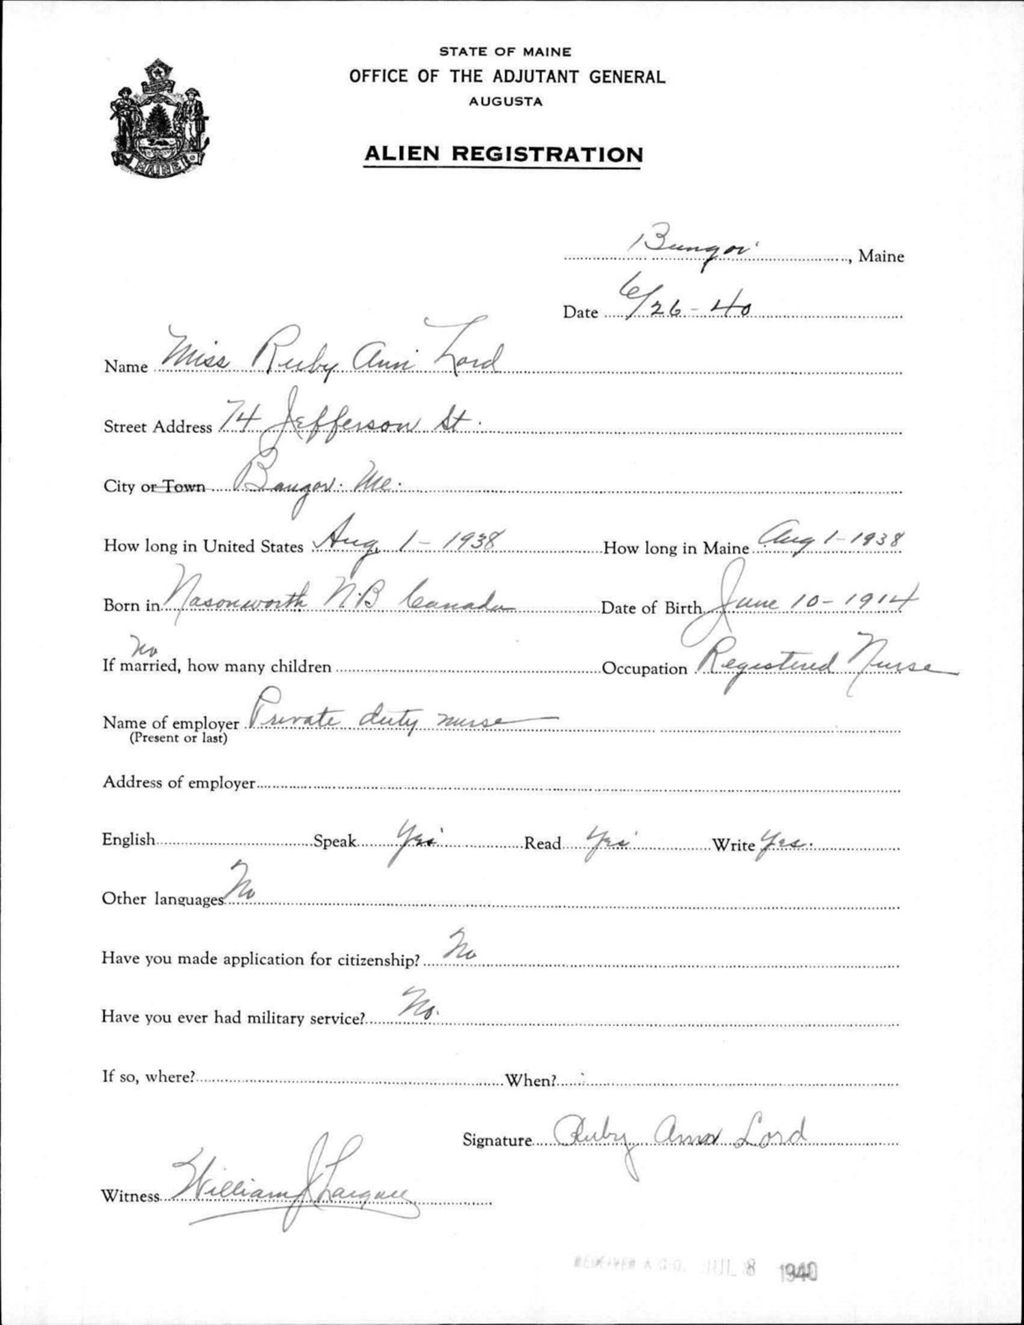 STATE OF MAINE
OFFICE OF THE ADJUTANT GENERAL
AUGUSTA
ALIEN REGISTRATION
MAINE
Bangor, Maine
Date 6/26-40
Name Miss Ruby Ann Lord
Street Address 74 Jefferson St.
City or Town Bangor. Me.
How long in United States Aug. 1 - 1938 How long in Maine Aug 1 - 1938
Born in Nasonworth N.B Canada Date of Birth June 10 - 1914
No
If married, how many children Occupation Registered Nurse
Name of employer Private duty nurse
(Present or last)
Address of employer
English Speak Yes Read Yes Write Yes.
Other languages No
Have you made application for citizenship? No
Have you ever had military service? No.
If so, where? When?
Signature Ruby Ann Lord
Witness William J
RECEIVED A.G.O. JUL 8 1940